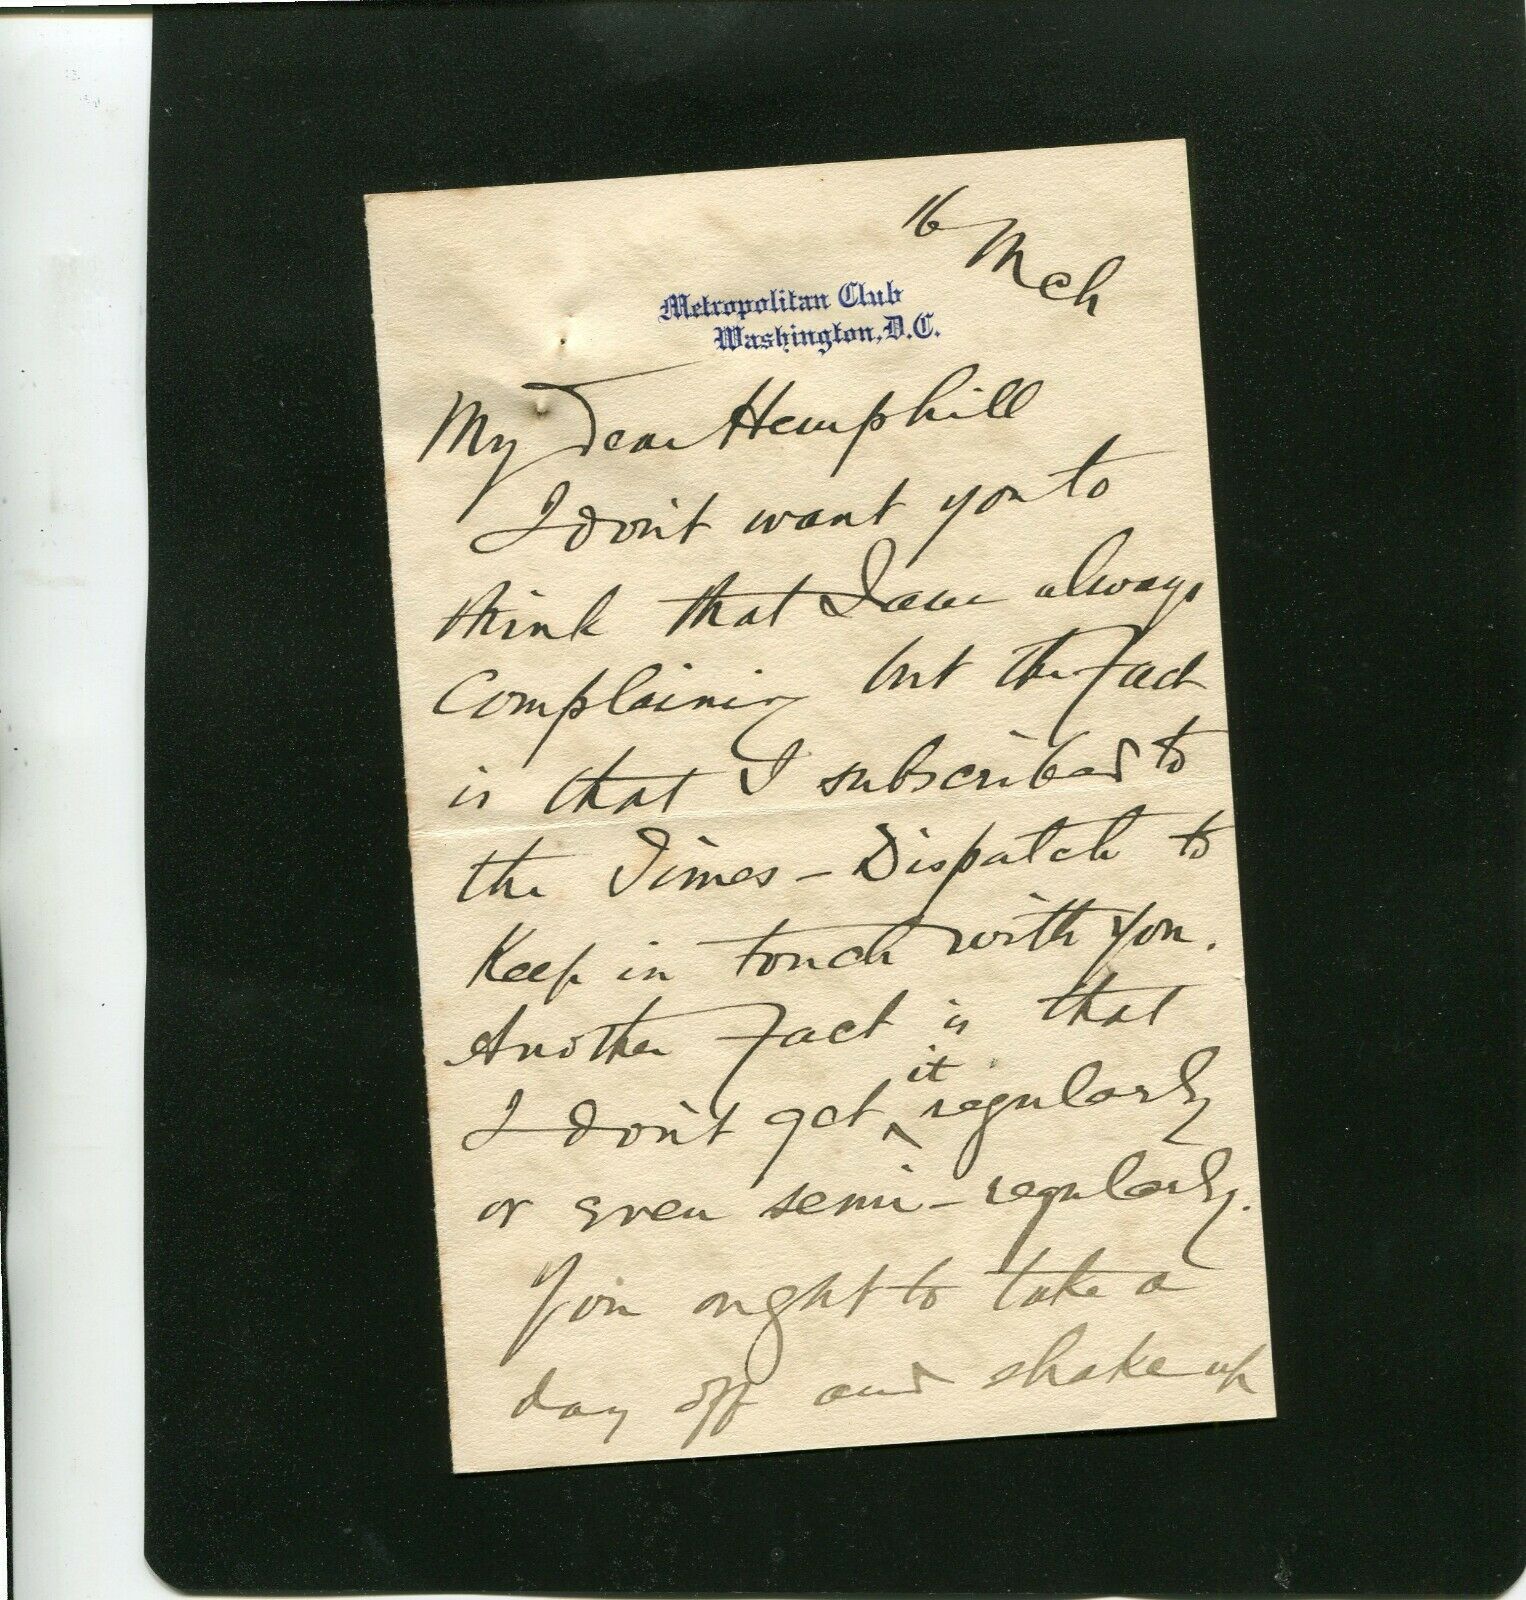 16 Mch
Metropolitan Club
Washington, D.C.
My Dear Hemphill
I don't want you to
think that I am always
complaining but the fact
is that I subscribed to
the Times-Dispatch to
keep in touch with you.
Another fact is that
I don't get ^it regularly
or even semi-regularly.
You ought to take a
day off and shake up